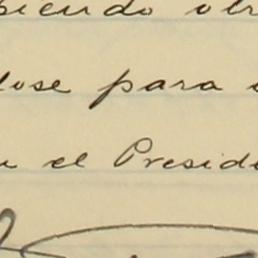 biendo otr
dose para
el Presid